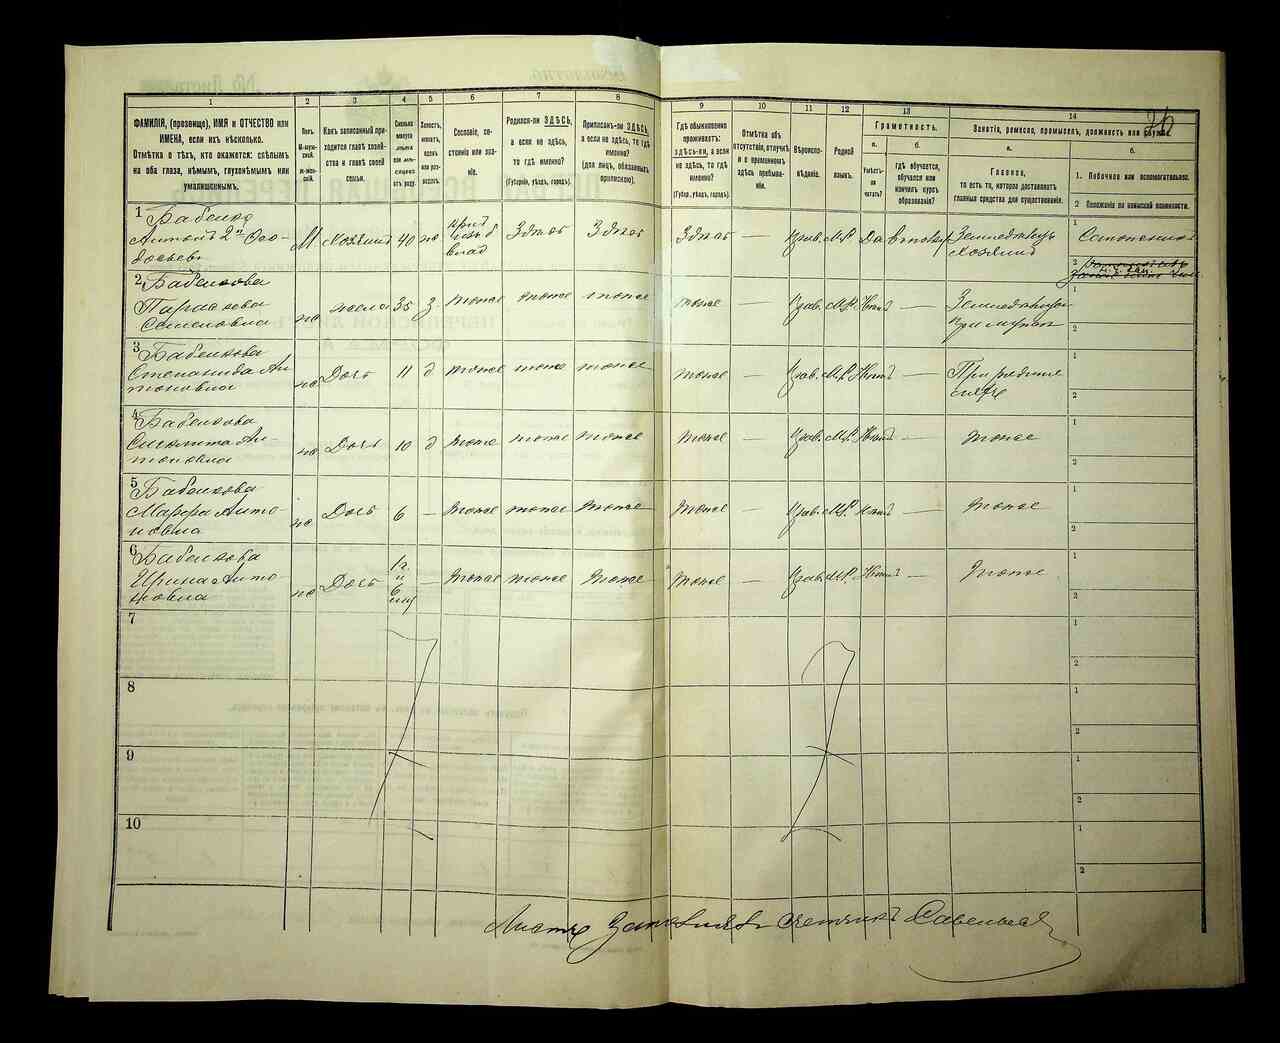 26
1 2 3 4 5 6 7 8 9 10 11 12 13 14
ФАМИЛІЯ, (прозвище), ИМЯ и ОТЧЕСТВО или
ИМЕНА, если ихъ нѣсколько.
Отмѣтка о тѣхъ, кто окажется: слѣпымъ
на оба глаза, нѣмымъ, глухонѣмымъ или
умалишеннымъ.
Полъ.
М-муж-
ской.
Ж-жен-
скій.
Какъ записанный при-
ходится главѣ хозяй-
ства и главѣ своей
семьи.
Сколько
минуло
лѣтъ
или мѣ-
сяцевъ
отъ роду.
Холостъ,
женатъ,
вдовъ
или раз-
веденъ.
Сословіе, со-
стояніе или зва-
ніе.
Родился-ли ЗДѢСЬ,
а если не здѣсь,
то гдѣ именно?
(Губернія, уѣздъ, городъ).
Приписанъ-ли ЗДѢСЬ,
а если не здѣсь, то гдѣ
именно?
(для лицъ, обязанныхъ
припискою).
Гдѣ обыкновенно
проживаетъ:
здѣсь-ли, а если
не здѣсь, то гдѣ
именно?
(Губер., уѣздъ, городъ).
Отмѣтка объ
отсутствіи, отлучкѣ
и о временномъ
здѣсь пребыва-
ніи.
Вѣроиспо-
вѣданіе.
Родной
языкъ.
Грамотность.
а. б.
Умѣетъ-
ли
читать?
гдѣ обучается,
обучался или
кончилъ курсъ
образованія?
Занятіе, ремесло, промыселъ, должность или служба.
а. б.
Главное,
то есть то, которое доставляетъ
главныя средства для существованія.
1. Побочное или вспомогательное.
2. Положеніе по воинской повинности.
1 Бабенко
Антонъ 2й Осо-
М Хозяинъ 40 Здѣсь Здѣсь Здѣсь — Прав. М.Р. Да Земледѣлецъ
Хозяинъ
1
2
2 Бабенкова
Параскева
Семеновна
жена 35 З тоже тоже тоже тоже — Прав. М.Р. Нѣтъ —
1
2
3 Бабенкова
Степанида Ан
тоновна
Дочь 11 д тоже тоже тоже тоже — Прав. М.Р. Нѣтъ —
1
2
4 Бабенкова
Ан-
тоновна
Дочь 10 д тоже тоже тоже тоже — Прав. М.Р. Нѣтъ — тоже
1
2
5 Бабенкова
Марфа Анто-
новна
Дочь 6 — тоже тоже тоже тоже — Прав. М.Р. Нѣтъ — тоже
1
2
6 Бабенкова
Ирина Анто
новна
Дочь 1 г.
и
6
— тоже тоже тоже тоже — Прав. М.Р. Нѣтъ — тоже
1
2
7 1
2
8 1
2
9 1
2
10 1
2
Листъ счетчикъ Савельевъ